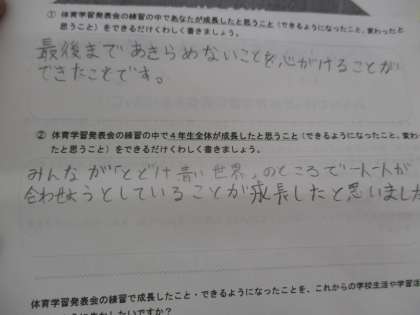 ① 体育学習発表会の練習の中であなたが成長したと思うこと(できるようになったこと、変わったと
思うこと)をできるだけくわしく書きましょう。
最後まであきらめないことを心がけることが
できたことです。
② 体育学習発表会の練習の中で4年生全体が成長したと思うこと(できるようになったこと、変わっ
たと思うこと)をできるだけくわしく書きましょう。
みんなが「とどけ青い世界」のところで一人一人が
合わせようとしていることが成長したと思いました
体育学習発表会の練習で成長したこと・できるようになったことを、これからの学校生活や学習活
たいですか？